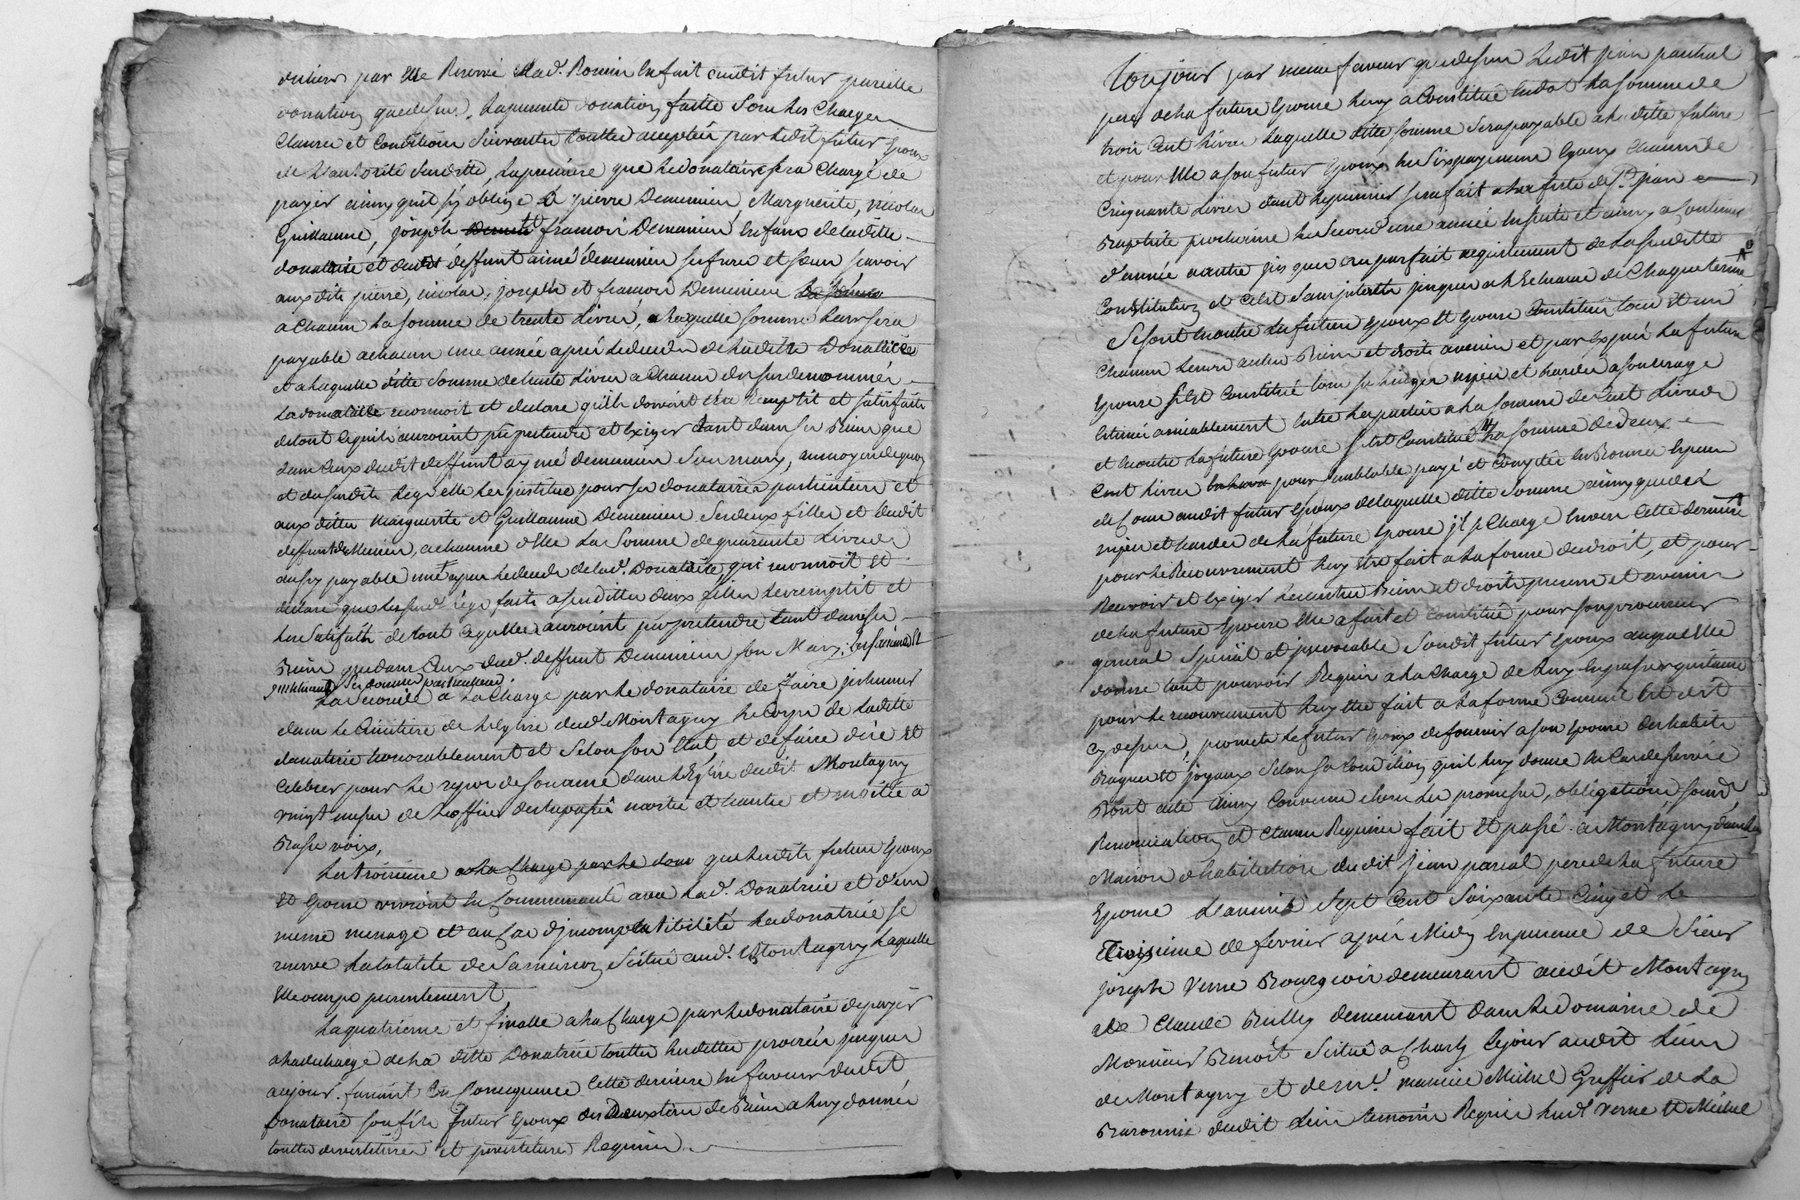 donation que dessus, la presente donation faitte sous les Charges
Clauses et Conditions suivantes touttes acceptées par ledit futur Epoux
de l'autorité susditte, la premiere que le donataire sera Chargé de
payer ainsy quil s'y oblige a pierre Demeunier Marguerite, nicolas
Guillaume, joseph françois Demeunier Enfans de laditte
donatrice et dudit deffunt aimé demeunier ses freres et sœurs sçavoir
aux dits pierre, nicolas, joseph et françois Demeunier
a Chacun la somme de trente Livres, laquelle somme leur sera
payable a chacun une année après le deces de laditte Donatrice
et a laquelle ditte somme de trente Livres a Chacun des surdenommés
la donatrice reconnoit et declare quils doivent etre remplit et satisfaits
de tout ce quils auroient pû pretendre et Exiger tant dans ses Biens que
dans Ceux dudit deffunt aymé demeunier son mary, au moyen de quoy
et du susdit legs elle les institue pour ses donataires particuliers et
aux dittes Marguerite et Guillaume Demeunier ses deux filles et dudit
deffunt Demeunier, a chacune d'Elle la somme de quarante Livres
aussy payable un an apres le deces de lad. Donatrice qui reconnoit et
declare que les susd. legs faits a ses dittes deux filles les remplit et
les satisfait de tout ce quelles auroient pû pretendre tant dans ses
Biens que dans Ceux dud. deffunt Demeunier son Mary,
La seconde a la Charge par le donataire de faire inhumer
dans le Cimetiere de l'Eglise dud. Montagny le Corps de laditte
donatrice honorablement et selon son Etat et de faire dire et
Celebrer pour le repos de son ame dans l'Eglise dudit Montagny
vingt messes de l'office des trepassés moitié et hautes et moitié a
Basse voix,
La troisieme a la Charge par le que lesdits futurs Epoux
et Epouse vivront en Communauté avec lad. Donatrice et d'un
meme menage et au Cas d'incompatibilité la donatrice se
reserve la totalité de sa maison scituée aud. Montagny laquelle
Elle occupe presentement,
La quatrieme et finalle a la Charge par le donataire de payer
a la decharge de la ditte Donatrice touttes les dettes procréés jusques
aujour. faisant En Consequence Cette derniere En faveur dudit
Donataire son fils futur Epoux des Biens a luy donnés
touttes devestitures et investitures Requises.
Toujours par meme faveur que dessus Ledit jean pascal
pere de la future Epouse luy a Constitué En dot la somme de
trois Cent Livres laquelle ditte somme sera payable a la ditte future
et pour Elle a son futur Epoux En six payemens Egaux Chacun de
Cinquante Livres dont le premier sera fait a la feste de St. jean
Baptiste prochaine le second une année En suite et ainsy a Continuer
d'année a autre jusques au parfait acquittement de la susditte
Constitution et C'est sans interest jusques a l'Echeance de Chaque terme
Se sont En outre les futurs Epoux et Epouse Constitués tous et un
Chacun leurs autres Biens et droits avenir et par Exprès la future
Epouse s'Est Constitué tous ses linges nipes et hardes a son usage
Estimés amiablement Entre les parties a la somme de Cent Livres
et En outre la future Epouse s'est Constitué la somme de deux
Cent Livres pour semblable payé et Compté En Bonnes Especes
de Cours audit futur Epoux de laquelle ditte somme ainsy que des
nipes et hardes de la future Epouse il se Charge Envers Cette derniere
pour le Recouvrement luy etre fait a la forme du droit, et pour
Recevoir et Exiger les autres Biens et droits presens et avenir
de la future Epouse Elle a fait et Constitué pour son procureur
general special et irrevocable sondit futur Epoux auquel Elle
donne tout pouvoir Requis a la Charge de luy En passer quittance
pour le recouvrement luy Etre fait a la forme Comme Est dit
Cy dessus, promete le futur Epoux de fournir a son Epouse des habits
Bagues et joyaux selon sa Condition quil luy donne En Cas de survie
Dont acte ainsy Convenu sous les promesses, obligations,
Renonciations et Clauses Requises fait Et passé a Montagny dans la
Maison d'habitation dudit jean pascal pere de la future
Epouse L'an mil sept Cent soixante Cinq et le
Troisieme de fevrier après Midy En presence de Sieur
joseph Verne Bourgeois demeurant audit Montagny
de Claude Brully demeurant dans le Domaine de
Monsieur Benoit scitué a Charly de jour audit Lieu
de Montagny et de Mr. maurice Michel Greffier de la
Baronnie dudit Lieu temoins Requis led. Verne et Michel